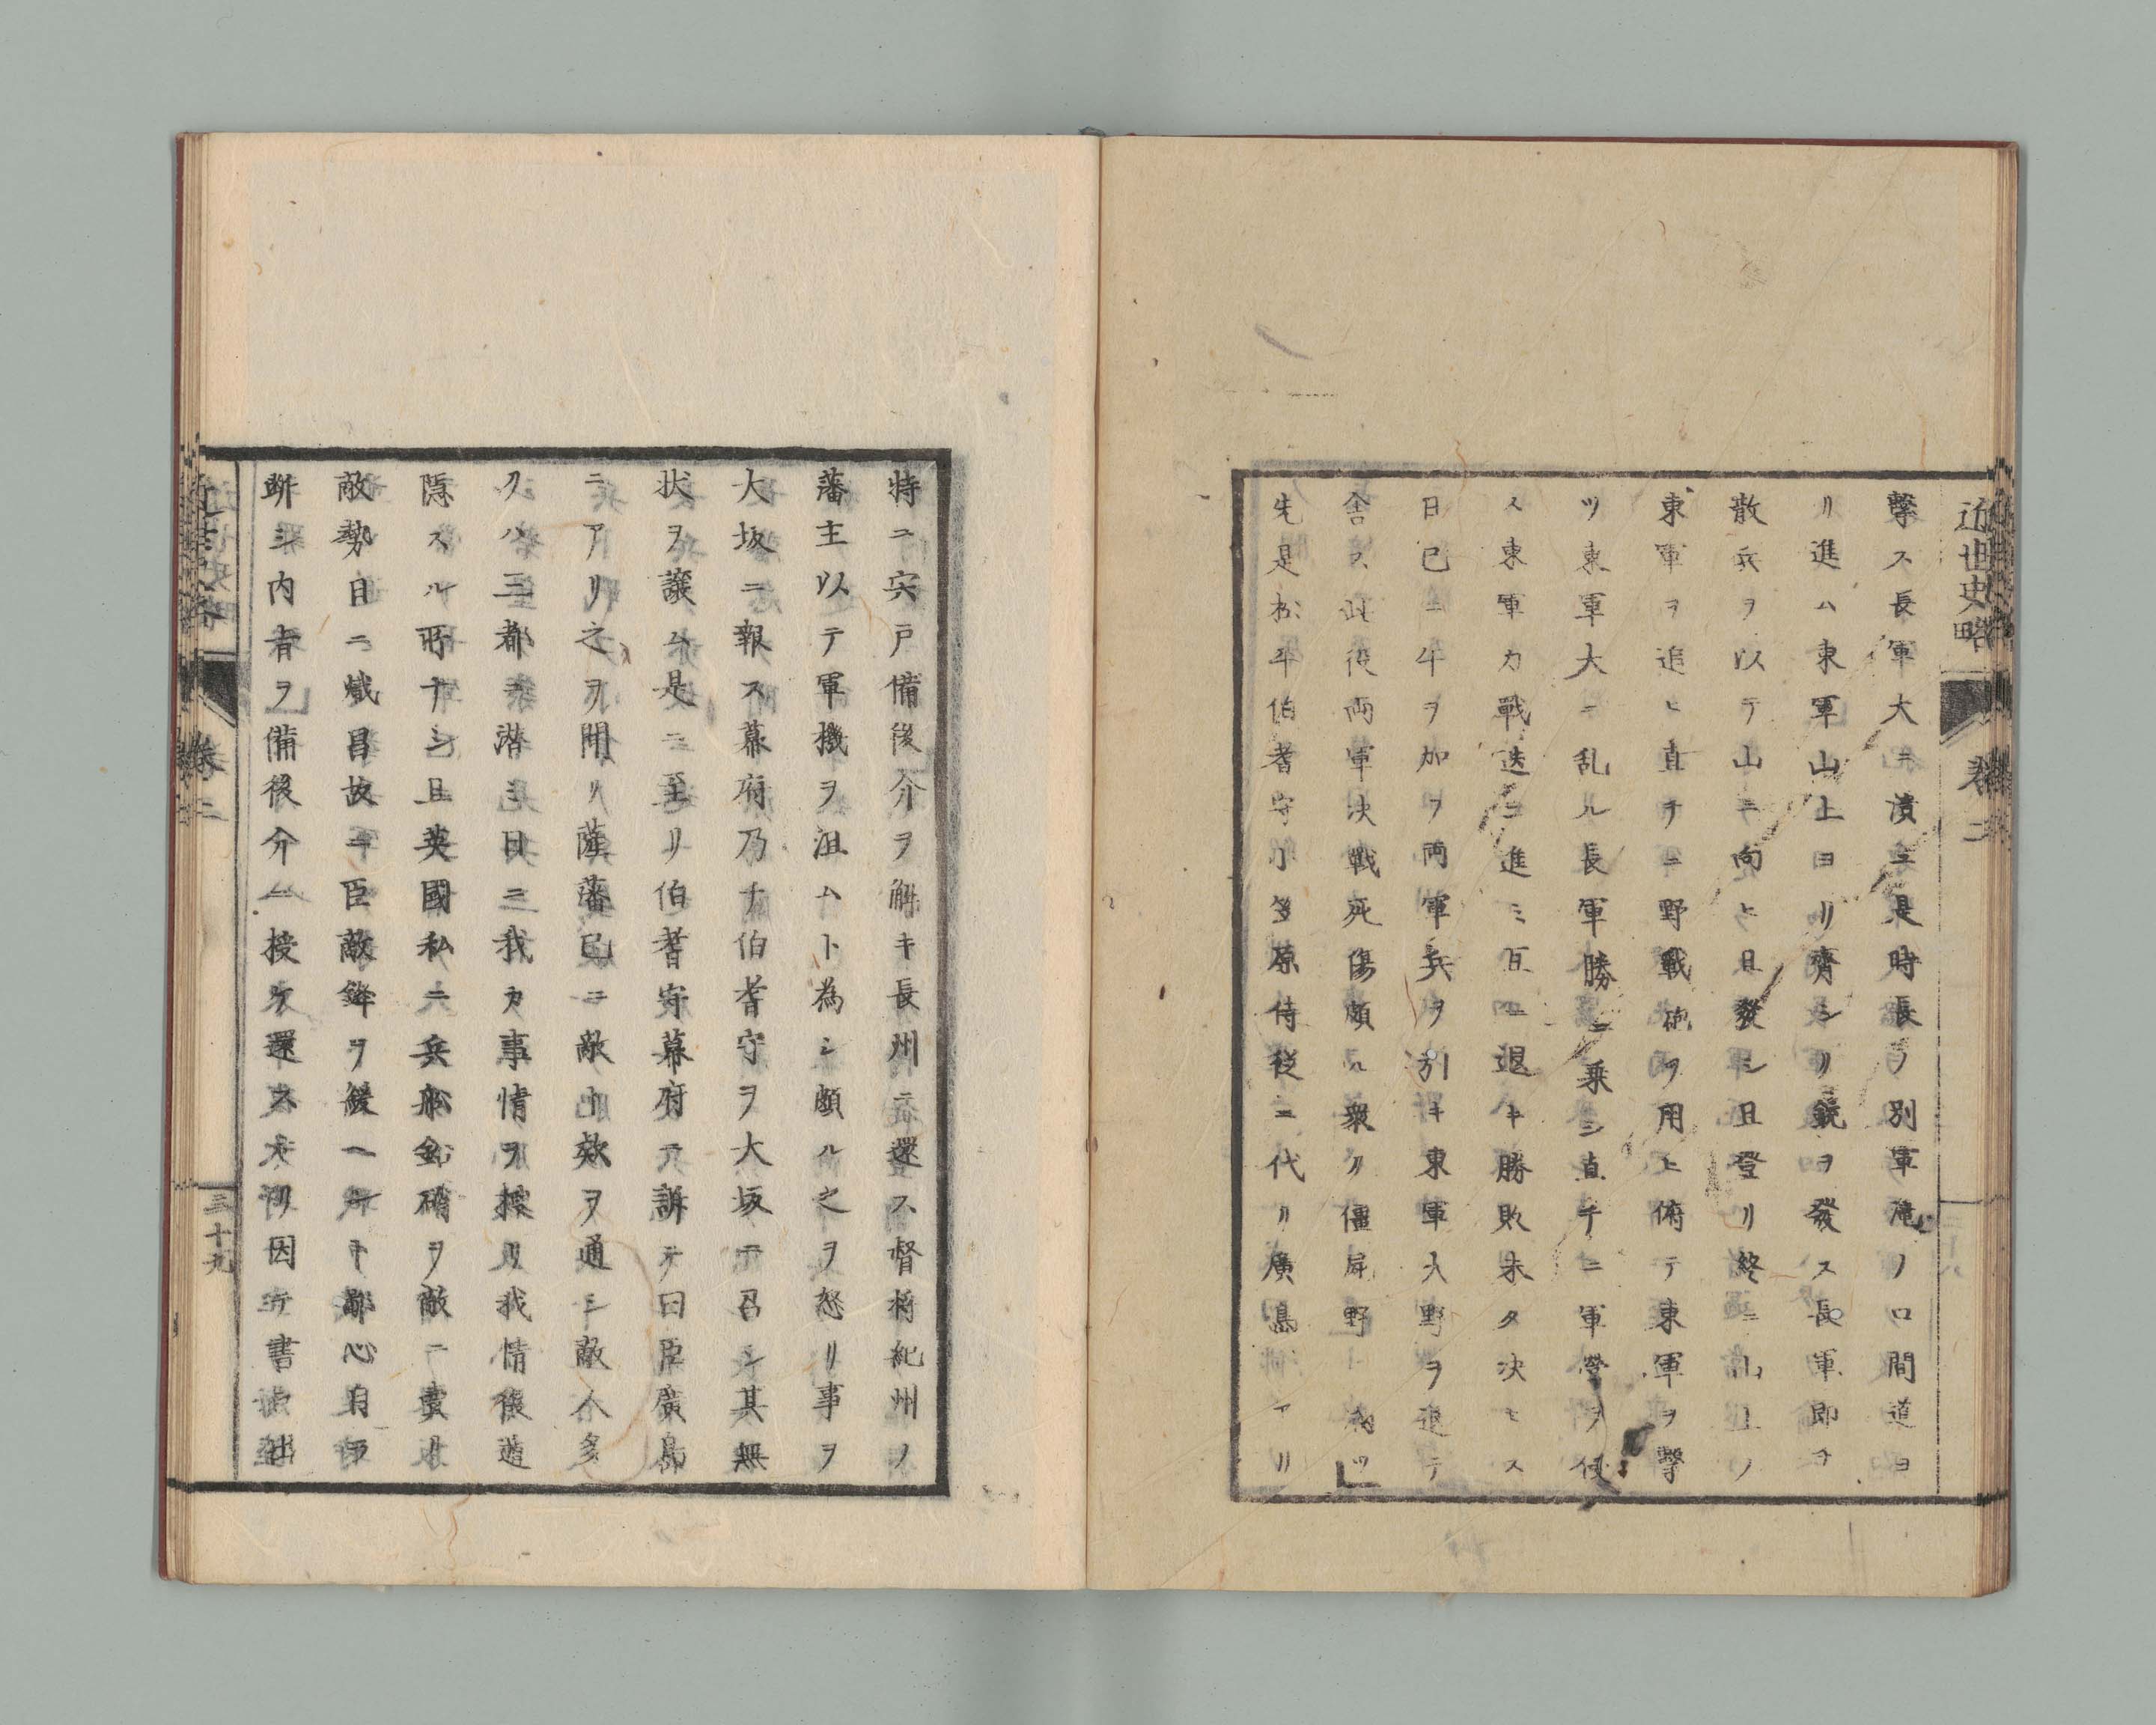 近世史略 卷二
擊ス長軍大ニ潰ユ是時長ノ別軍滝ノ口間道ヨ
リ進ム東軍山上ヨリ齊シク銃ヲ發ス長軍即チ
散兵ヲ以テ山ニ向ヒ且發シ且登リ終ニ山上ノ
東軍ヲ追ヒ直チニ野戰砲ヲ用ヒ俯テ東軍ヲ擊
ツ東軍大ニ乱ル長軍勝ニ乗シ直チニ軍營ヲ侵
ス東軍力戰迭ニ進ミ互ニ退キ勝敗未タ决セス
日已ニ午ヲ加ヲ両軍兵ヲ別キ東軍大野ヲ退テ
舎ス此役両軍决戰死傷頗ル衆ク僵屍野ニ満ツ
先是松平伯耆守小笠原侍従ニ代リ廣島ニアリ
特ニ宍戸備後介ヲ解キ長州ニ還ス督將紀州ノ
藩主以テ軍機ヲ沮ムト為シ頗ル之ヲ怒リ事ヲ
大坂ニ報ス幕府乃チ伯耆守ヲ大坂ニ召シ其無
状ヲ譲ム是ニ至リ伯耆守幕府ニ訴テ曰臣廣島
ニアリ之ヲ聞ク薩藩已ニ敵ト欵ヲ通シ敵人多
ク八三都ニ潜ミ日ニ我カ事情ヲ探リ我情復遁
隠スル所ナシ且英國私ニ兵船銃硝ヲ敵ニ賣リ
敵勢日ニ熾昌故ニ臣敵鋒ヲ緩ヘント鄙心自ラ
斷シ内旨ヲ備後介ニ授ケ還ス
因テ書
卷二
三十九